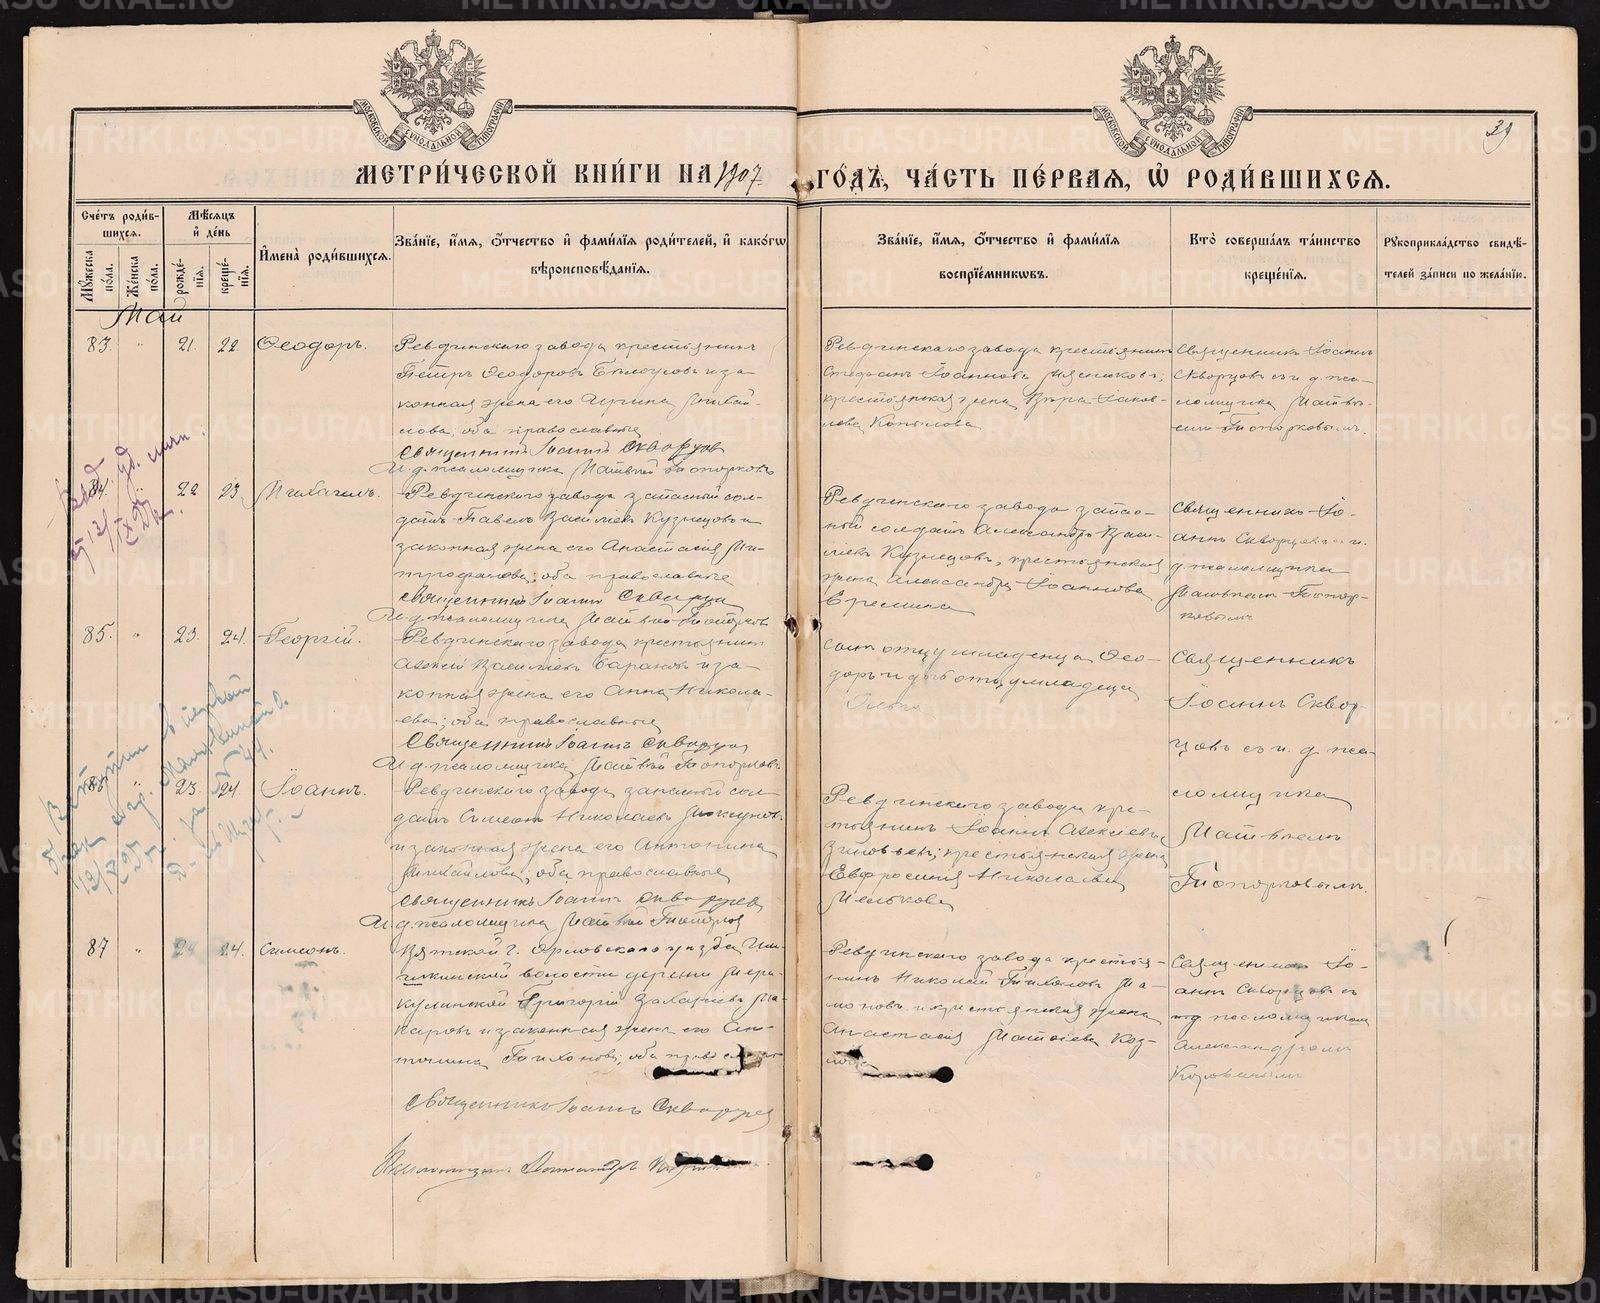 МОСКОВСКОЙ СѴНОДАЛЬНОЙ ТИПОГРАФІИ
МОСКОВСКОЙ СѴНОДАЛЬНОЙ ТИПОГРАФІИ
39
МЕТРИ́ЧЕСКОЙ КНИ́ГИ НА 1907 ГО́ДЪ, ЧА́СТЬ ПЕ́РВАЯ, Ѡ РОДИ́ВШИХСЯ.
Сче́тъ роди́в-
шихся.
Мѣ́сяцъ
и де́нь
Мꙋ́жеска по́ла.
Же́нска по́ла.
рожде́-
нїя.
креще́-
нїя.
И҆мена̀ роди́вшихся.
Зва́нїе, и҆́мя, ѻ҆́тчество и҆ фами́лїя роди́телей, и҆ како́гѡ
вѣроисповѣ́данїя.
Зва́нїе, и҆́мя, ѻ҆́тчество и҆ фами́лїя
воспрїе́мникѡвъ.
Кто̀ соверша́лъ та́инство
креще́нїя.
Рꙋкоприкла́дство свидѣ́-
телей за́писи по жела́нїю.
Май
83. " 21. 22 Ѳеодоръ.
Ревдинскаго завода крестьянинъ
Петръ Ѳеодоровъ Бѣлоусовъ и за-
конная жена его Ирина Михай-
лова, оба православные
Священникъ Іоаннъ Скворцов
И. д. псаломщика Матвѣй Топорковъ
Ревдинскаго завода крестьянинъ
Стефанъ Іоанновъ Мясниковъ;
крестьянская жена Вѣра Яков-
лева Копылова
Священникъ Іоаннъ
Скворцовъ съ и. д. пса-
ломщика Матвѣ-
емъ Топорковымъ.
84. " 22 23. Михаилъ.
Ревдинскаго завода запасный сол-
датъ Павелъ Васильевъ Кузнецовъ и
законная жена его Анастасія Ми-
трофанова; оба православные
Священникъ Іоаннъ Скворцов
И. д. псаломщика Матвѣй Топорков
Ревдинскаго завода запас-
ный солдатъ Александръ Васи-
льевъ Кузнецовъ, крестьянская
жена Александра Іоаннова
Еремина
Священникъ Іо-
аннъ Скворцовъ съ и.
д. псаломщика
Матвѣемъ Топор-
ковымъ
85. " 23. 24. Георгій.
Ревдинскаго завода крестьянинъ
Алексій Васильевъ Барановъ и за-
конная жена его Анна Никола-
ева; оба православные
Священникъ Іоаннъ Скворцов
И. д. псаломщика Матвѣй Топорковъ
Сынъ отцу младенца Ѳео-
доръ и дочь отцу младенца
Ольга
Священникъ
Іоаннъ Сквор-
цовъ съ и. д. пса-
ломщика
Матвѣемъ
Топорковымъ.
86. " 23. 24. Іоаннъ.
Ревдинскаго завода запасный сол-
датъ Симеонъ Николаевъ
и законная жена его Антонина
Михайлова; оба православные
Священникъ Іоаннъ Скворцов
И. д. псаломщика Матвѣй Топорков
Ревдинскаго завода кре-
стьянинъ Іоаннъ Алексіевъ
Зиновьевъ; крестьянская жена
Евфросинія Николаева
87 " 24 24. Симеонъ.
Вятской г. Орловскаго уѣзда
волости деревни
Григорій Захаріевъ Ма-
каровъ и законная жена его Ан-
тонина Тихонова; оба православные
Священникъ Іоаннъ Скворцов
Псаломщикъ Александръ
Ревдинскаго завода крестья-
нинъ Николай Тихоновъ Ма-
моновъ и крестьянская жена
Анастасія Матѳіева Коз-
лова
Священникъ Іо-
аннъ Скворцовъ съ
псаломщикомъ
Александромъ
METRIKI.GASO-URAL.RU